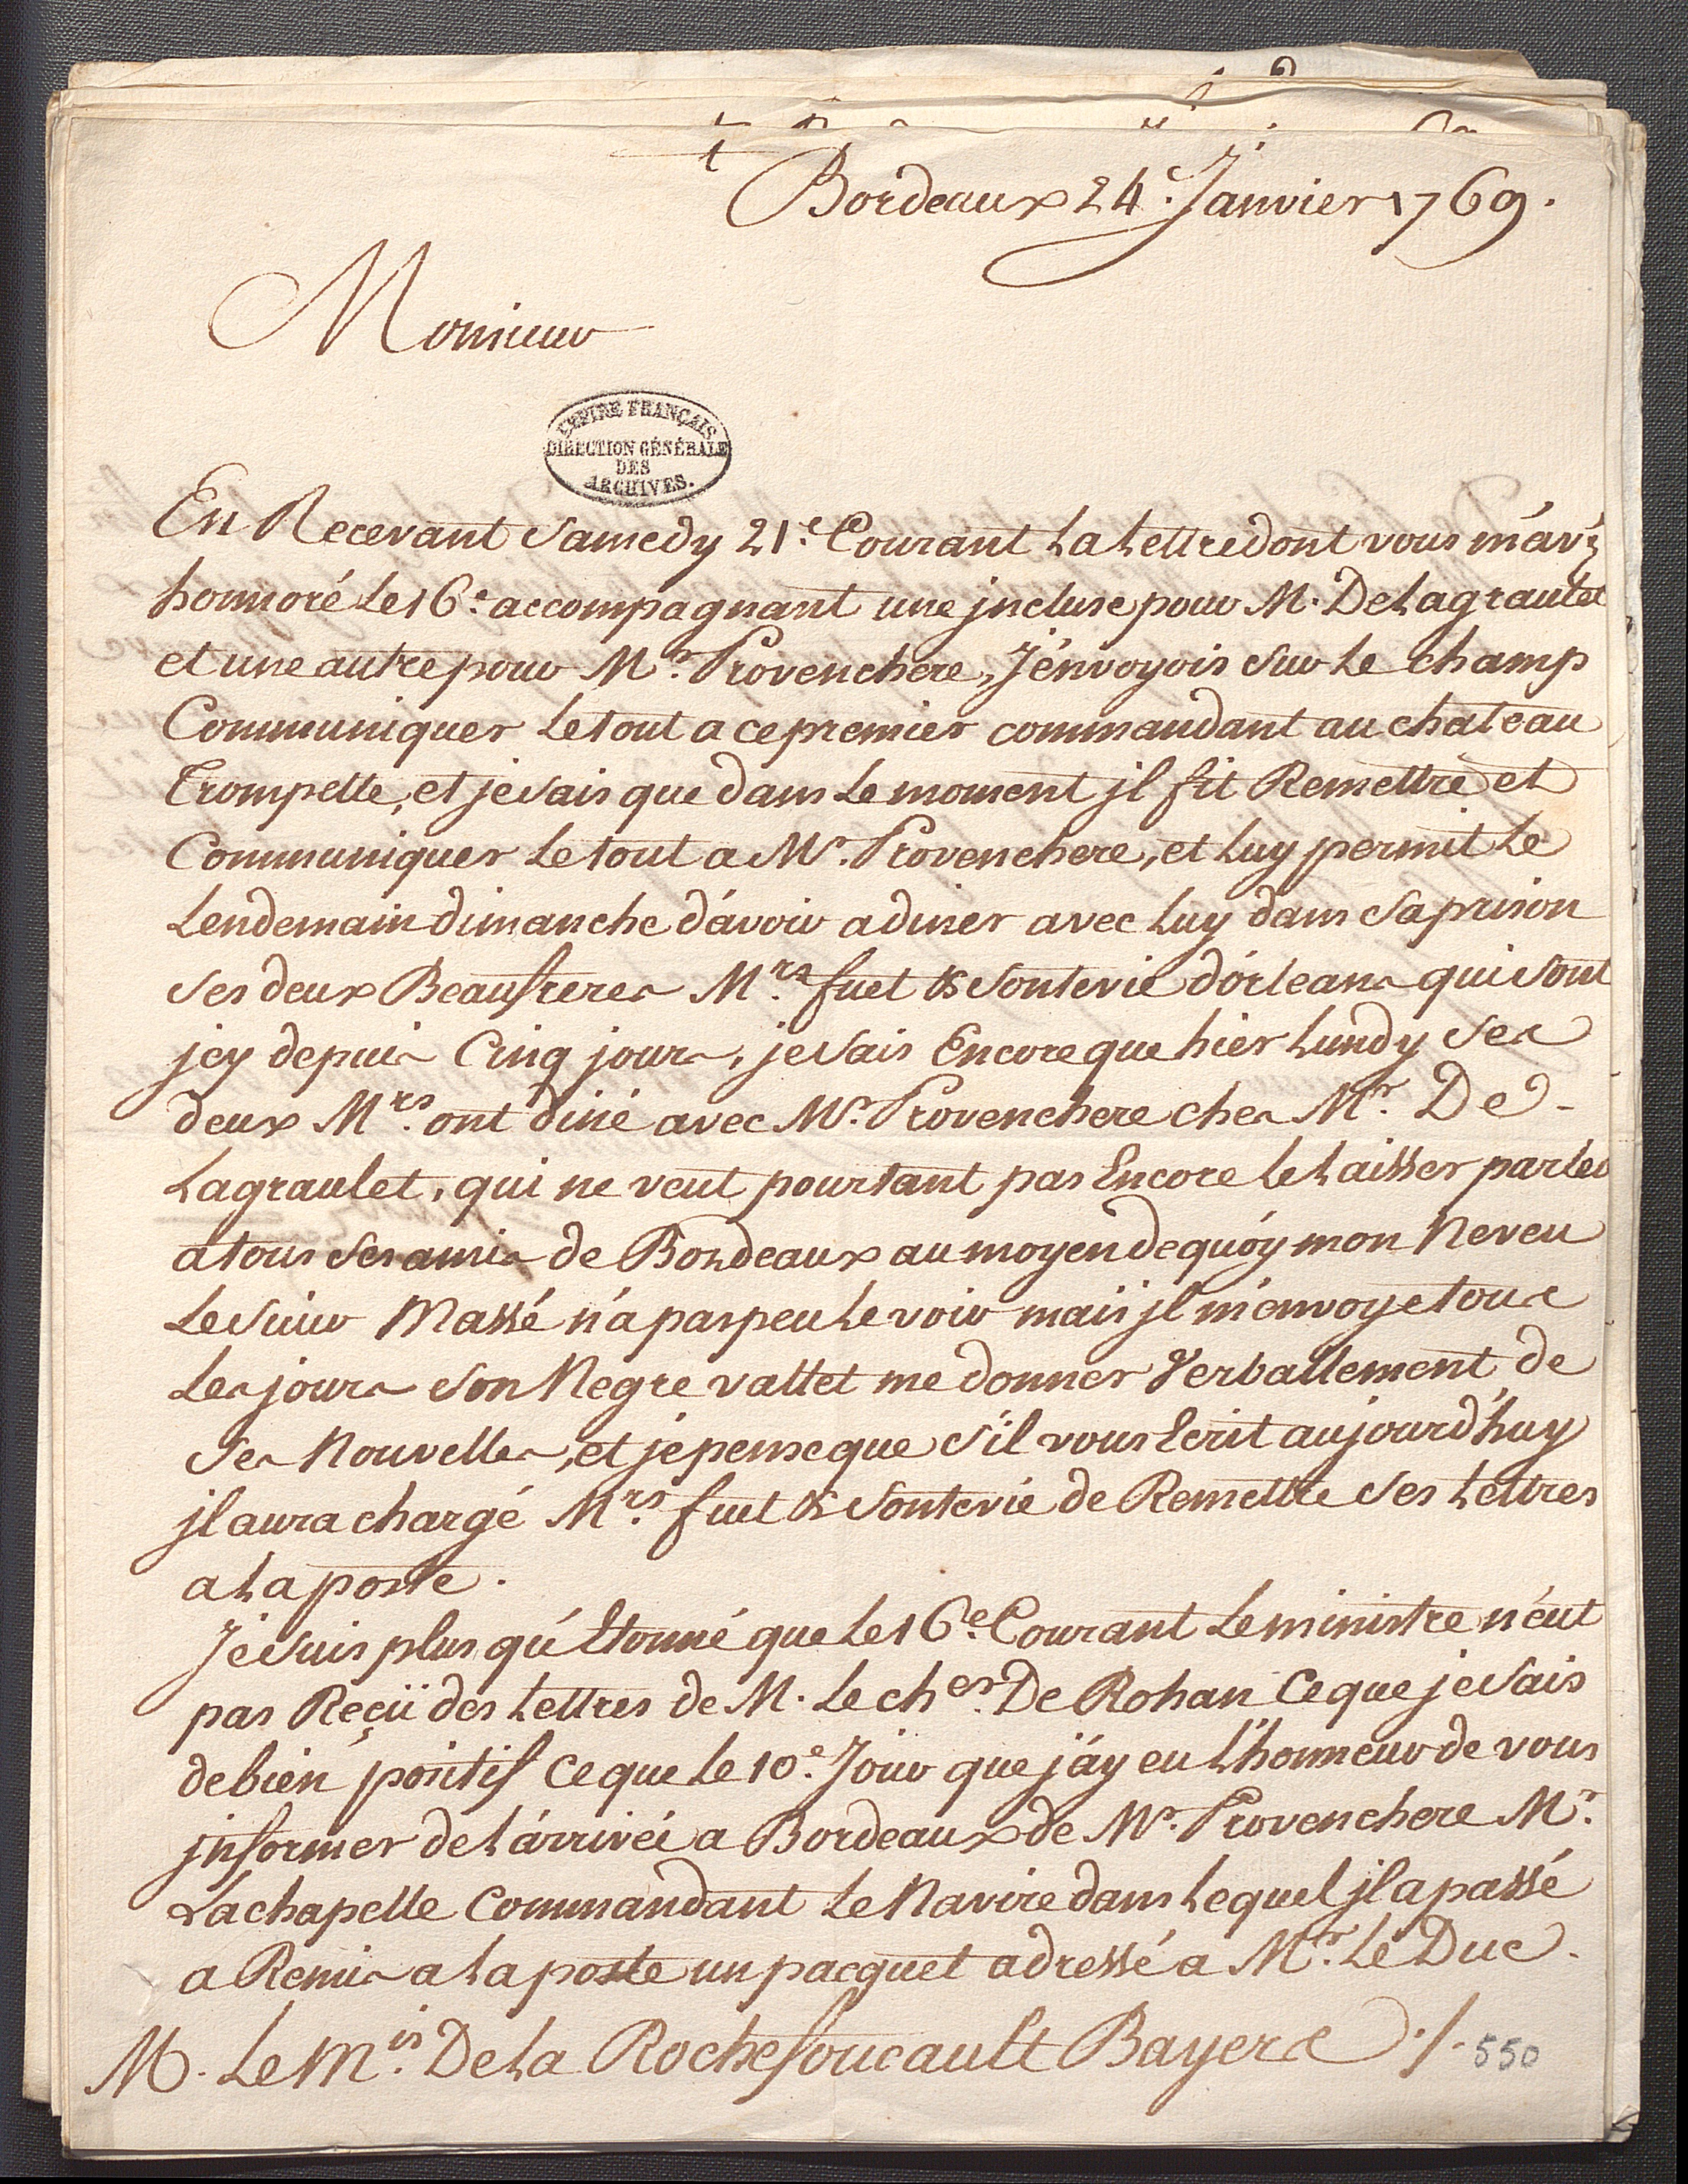 Bordeaux 24.e Janvier 1769.
Monsieur
EMPIRE FRANÇAIS
DIRECTION GÉNÉRALE
DES
ARCHIVES.
En Recevant Samedy 21.e Courant La Lettre dont vous m'avéz
honnoré Le 16.e accompagnant une jncluse pour M. De Lagraulet
et une autre pour M.r Provenchere, J'énvoyois Sur Le champ
Communiquer Le tout a ce premier commandant au chateau
Trompette, et je Sais que dans Le moment jl fit Remettre et
Communiquer Le tout a M.r Provenchere, et Luy permit Le
Lendemain dimanche d'ávoir a diner avec Luy dans Sa prison
Ses deux Beaufreres M.rs fuet & Sontevie d'órleans qui Sont
jcy depuis Cinq jours, je Sais Encore que hier Lundy Ses
deux M.rs ont diné avec M.r Provenchere ches M.r De
Lagraulet, qui ne veut pourtant pas Encore Le Laisser parler
a tous Ses amis de Bordeaux au moyen de quóy mon Neveu
Le Sieur Massé n'a pas peu Le voir mais jl m'envoye tous
Les jours Son Negre vallet me donner Verballement de
Ses Nouvelles, et je pense que S'il vous Ecrit aujourd'huy
jl aura chargé M.rs fuet & Sontevie de Remettre Ses Lettres
a La poste.
Je Suis plus qu'Etonné que Le 16.e Courant Le ministre n'eut
pas Reçü des Lettres de M. Le ch.er De Rohan Ce que je Sais
de bien positif Ce que Le 10.e Jour que j'áy eu L'honneur de vous
jnformer de L'árrivéé a Bordeaux de M.r Provenchere M.r
Lachapelle Commandant Le Navire dans Lequel jl a passé
a Remis a La poste un pacquet adressé a M.r Le Duc
M. Le M.is De La Rochefoucault Bayers ./.
550